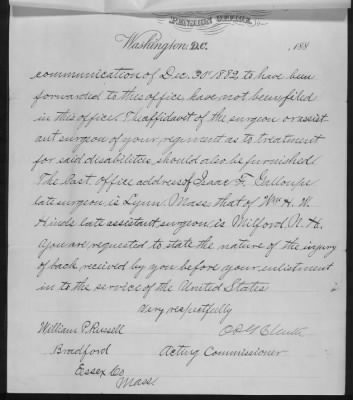 PENSION OFFICE,
Washington, D.C. 188
communication of Dec. 30th 1882, to have been
forwarded to this office, have not been filed
in this office. The affidavit of the surgeon or assist
ant surgeon of your regiment as to treatment
for said disabilities, should also be furnished
The last office address of Isaac F. Galloupe
late surgeon, is Lynn, Mass that of Wm H. W.
Hinds late assistant surgeon is Milford N. H.
You are requested to state the nature of the injury
of back received by you before your enlistment
in to the service of the United States
Very respectfully
William P. Russell
Bradford
Acting Commissioner
Essex Co
Mass